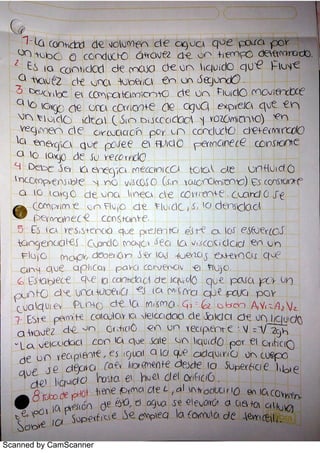 1-La cantidad de volumen de agua que pasa por
un tubo o conducto através de un tiempo determinado.
2. Es la cantidad de masa de un liquido que Fluye
a través de una tubería en un segundo.
3. Describe el comportamiento de un Fluido moviéndose
a lo largo de una corriente de agua expresa que en
un Fluido ideal (Sin viscocidad y rozamiento) en
regimen de circulación por un conducto determinado
la energia que posee el Fluido permanece constante
a lo largo de su recorrido
4. Debe ser la energia mecanica total de un fluido
Incompresible y no viscoso (sin rozonamiento) Es constante
a lo largo de una linea de corriente. Cuando se
comprime un Flujo de Fluido, s, la densidad
permanece constante.
5. Es la resistencia que presenta éste a los esfuerzos
tangenciales. Cuando mayor sea la viscosidad en un
Flujo mayor deberian ser las fuerzas externas que
ay que aplicar para conservar el Flujo.
6. Establece que la cantidad de liquido que pasa por un
punto de una tubería es la misma que pasa por
cualquier Punto de la misma. G1=G2 o bien A1V1=A2V2
7. Este permite calcular la velocidad de Salida de un liquido
a través de un orificio en un recipiente: V=√2gh
"La velocidad con la que sale un liquido por el orificio
de un recipiente, es igual a la que adquirio un cuerpo
que se dejara caer libremente desde la superficie libre
del liquido hasta el nivel del orificio.
8 Tubo de pitot: tiene forma de L, al introducirlo en la corrien
te, por la presión de ésta, el agua se elevará a cierta altura
Sobre la superficie Se emplea la formula de
Scanned by CamScanner